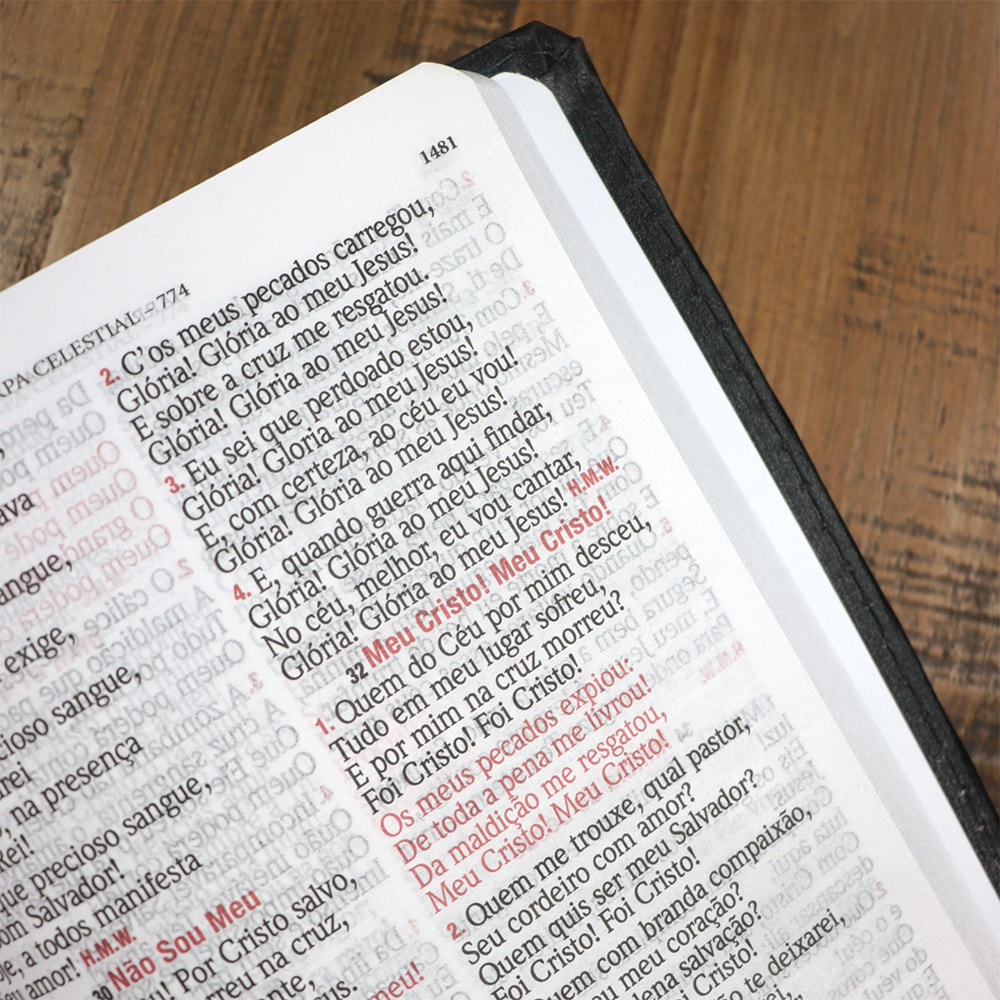 1481
CELESTIAL – 774
ava
sangue,
exige,
cioso sangue,
rei
, na presença
Rei!
que precioso sangue,
om Salvador!
oje, a todos manifesta
amor! H.M.W.
30 Não Sou Meu
! Por Cristo salvo,
rreu na cruz,
2. C'os meus pecados carregou,
Glória! Glória ao meu Jesus!
E sobre a cruz me resgatou.
Glória! Glória ao meu Jesus!
3. Eu sei que perdoado estou,
Glória! Gloria ao meu Jesus!
E, com certeza, ao céu eu vou!
Glória! Glória ao meu Jesus!
4. E, quando guerra aqui findar,
Glória! Glória ao meu Jesus!
No céu, melhor, eu vou cantar,
Glória! Glória ao meu Jesus! H.M.W.
32 Meu Cristo! Meu Cristo!
1. Quem do Céu por mim desceu,
Tudo em meu lugar sofreu,
E por mim na cruz morreu?
Foi Cristo! Foi Cristo!
Os meus pecados expiou:
De toda a pena me livrou!
Da maldição me resgatou,
Meu Cristo! Meu Cristo!
2. Quem me trouxe, qual pastor,
Seu cordeiro com amor?
Quem quis ser meu Salvador?
Foi Cristo! Foi Cristo!
Quem com branda compaixão,
ou meu coração?
lena salvação?
Cristo!
te deixarei,